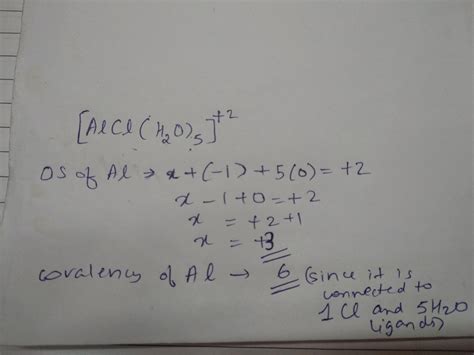 [AlCl(H₂O)₅]⁺²
OS of Al → x + (-1) + 5(0) = +2
x - 1 + 0 = +2
x = +2 +1
x = +3
covalency of Al → 6 (since it is
connected to
1 Cl and 5H₂O
ligands)